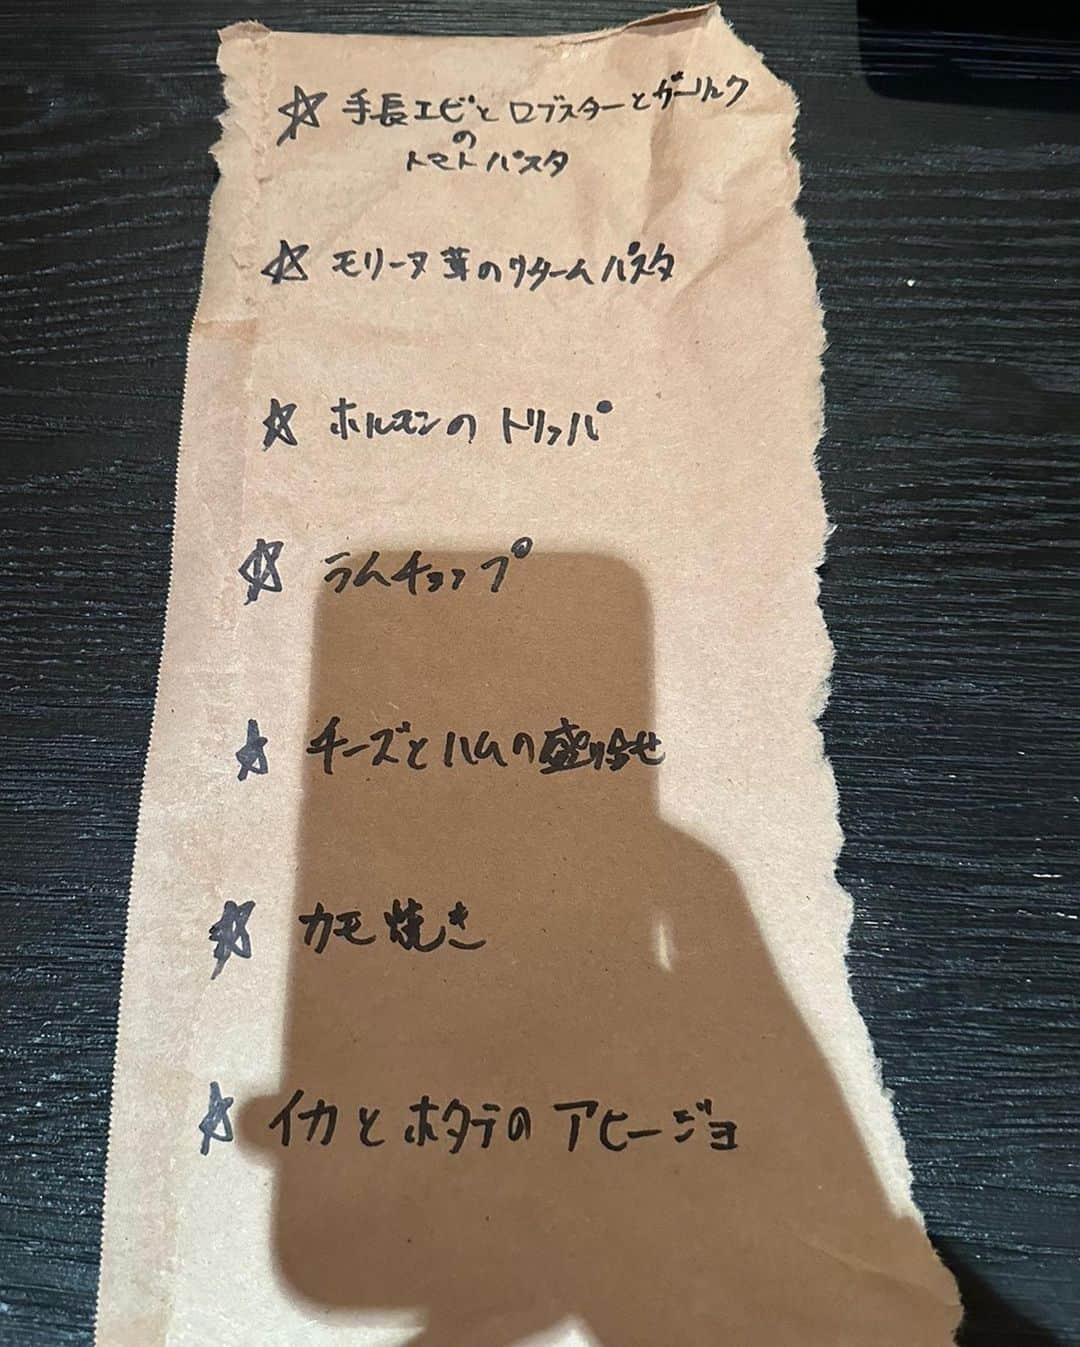 ☆ 手長エビとロブスターとガーリック
の
トマトパスタ
☆ モリーヌ茸のクリームパスタ
☆ ホルモンのトリッパ
☆ ラムチョップ
☆ チーズとハムの盛り合せ
☆ カモ焼き
☆ イカとホタテのアヒージョ